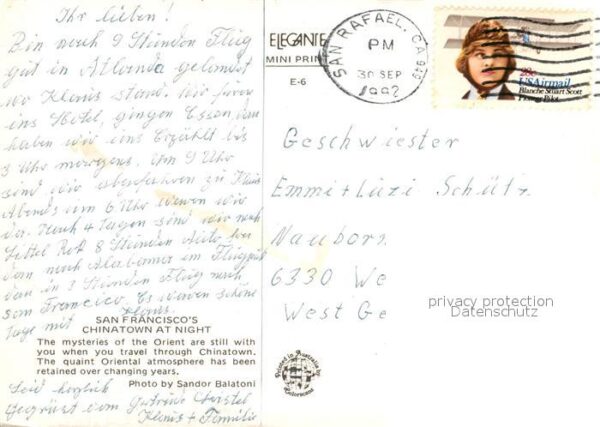 Ihr lieben!
Bin nach 9 Stunden Flug
gut in Atlanta gelandet
wo Klaus stand. Wir
ins Hotel, gingen Essen dann
haben wir uns Erzählt bis
3 Uhr morgens. Um 9 Uhr
sind wir abgefahren zu Klaus
Abends um 6 Uhr waren wir
da. Nach 4 Tagen sind wir nach
Littel Rok 8 Stunden Auto,
dann nach Alabama im
dan in 3 Stunden Flug nach
san Francico. Es waren schöne
Tage mit Klaus.
SAN FRANCISCO'S
CHINATOWN AT NIGHT
The mysteries of the Orient are still with
you when you travel through Chinatown.
The quaint Oriental atmosphere has been
retained over changing years.
Photo by Sandor Balatoni
Seid herzlich
Gegrüst von
Klaus + Familie
ELEGANTE
MINI PRINT
E-6
SAN RAFAEL, CA
PM
30 SEP
1992
28c
USAirmail
Blanche Stuart Scott
Pioneer Pilot
Geschwiester
Emmi + Luzi Schütz
Nauborn
6330 We
West Ge
privacy protection
Datenschutz
Printed in Australia by